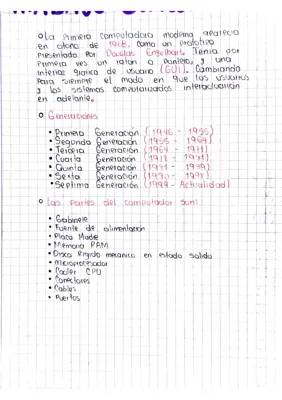 La Primera computadora moderna apareció
en otoño de 1968, como un prototipo
presentado por Douglas Engelbart. Tenía por
primera vez un ratón o puntero, y una
interfaz gráfica de usuario (GUI). Cambiando
para siempre el modo en que los usuarios
y los sistemas computarizados interactuarían
en adelante.
Generaciones
• Primera Generación (1946 - 1955)
• Segunda Generación (1955 - 1964)
• Tercera Generación (1964 - 1971)
• Cuarta Generación (1971 - 1981)
• Quinta Generación
• Sexta Generación
• Séptima Generación (1999 - Actualidad)
Las Partes del computador son:
• Gabinete
• Fuente de alimentación
• Placa Madre
• Memoria RAM
• Disco Rígido mecánico en estado solido
• Microprocesador
• Cooler CPU
• Conectores
• Cables
• Puertos